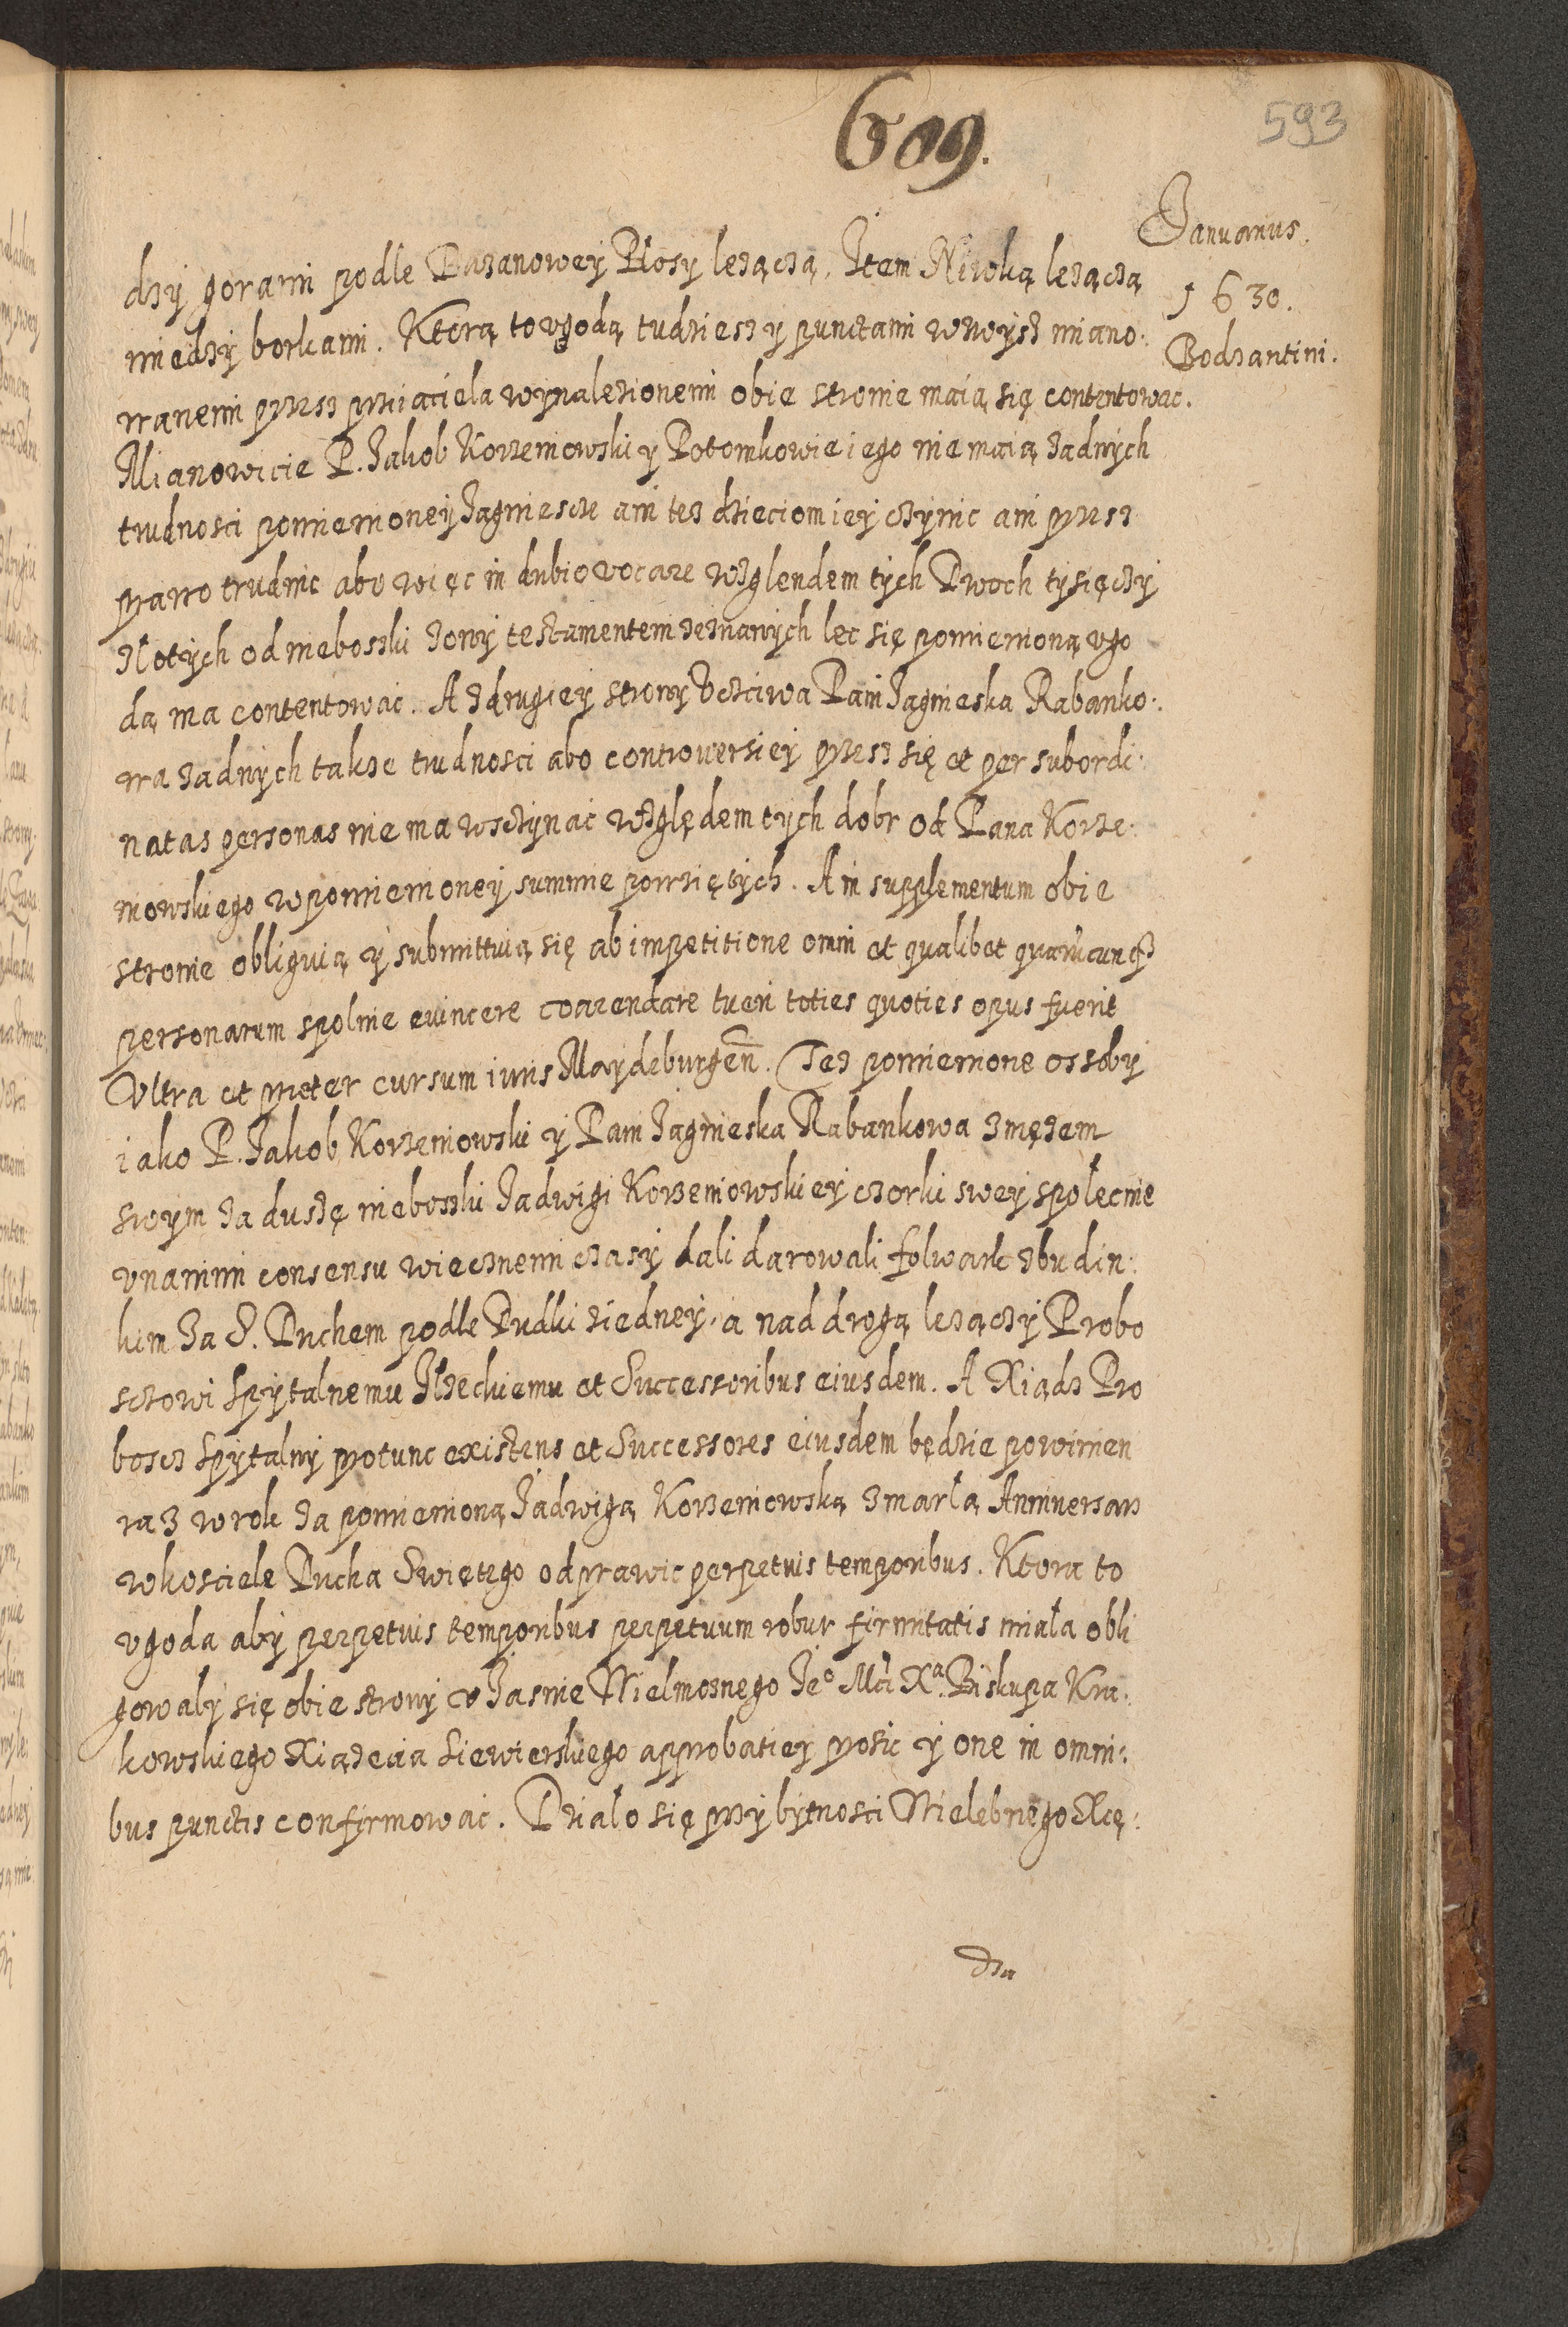 609.
593
Januarius.
1630.
Bodzantini.
dzy gorami podle Bazanowey Rosy lezączą, Item Niwką lezączą
miedzy borkami. Ktorą to vgodą tudziesz y punctami wzwysz miano:
wanemi przez przyiaciela wynalezionemi obie stronie maią się contentowac.
Mianowicie P. Jakob Korzeniowski y Potomkowie iego nie maią zadnych
trudnosci pomienioney Jagniescze ani tez dzieciom iey czynic ani przez
prawo trudnic abo więc in dubio vocare wzglendem tych Dwoch tysięczy
złotych od nieboszki zony testamentem zeznanych lec się pomienioną vgo
dą ma contentowac. A z drugiey strony Vcziwa Pani Jagnieska Rabanko:
wa zadnych takze trudnosci abo controversiey przez się et per subordi:
natas personas nie ma wsczynac względem tych dobr od Pana Korze:
niowskiego w pomienioney summie powziętych. A in supplementum obie
stronie obliguią y submittuią się ab impetitione omni et qualibet quarucunq3
personarum spolnie evincere coarendare tueri toties quoties opus fuerit
Vltra et preter cursum iuris Maydeburgen. Tez pomienione ossoby
iako P. Jakob Korzeniowski y Pani Jagnieska Rabankowa z mężem
swym za duszę nieboszki Jadwigi Korzeniowskiey czorki swey społecnie
vnanimi consensu wiecznemi czasy dali darowali folwark z budin:
kim za S. Duchem podle Dudki ziedney, a nad drogą lezączy Probo
sczowi Spytalnemu Ilzeckiemu et Successoribus eiusdem. A Xiądz Pro
boscz Spytalny protunc existens et Successores eiusdem będzie powinien
raz w rok za pomienioną Jadwigą Korzeniowską zmarłą Anniversarz
w kosciele Ducha Swiętego odprawic perpetuis temporibus. Ktora to
vgoda aby perpetuis temporibus perpetuum robur firmitatis miała obli
gowały się obie strony v Jasnie Wielmoznego Je° Mci Xª. Biskupa Kra:
kowskiego Xiązecia Siewierskiego approbatiey prosic y one in omni:
bus punctis confirmowac. Działo się przy bytnosci Wielebnego Xcę:
dza